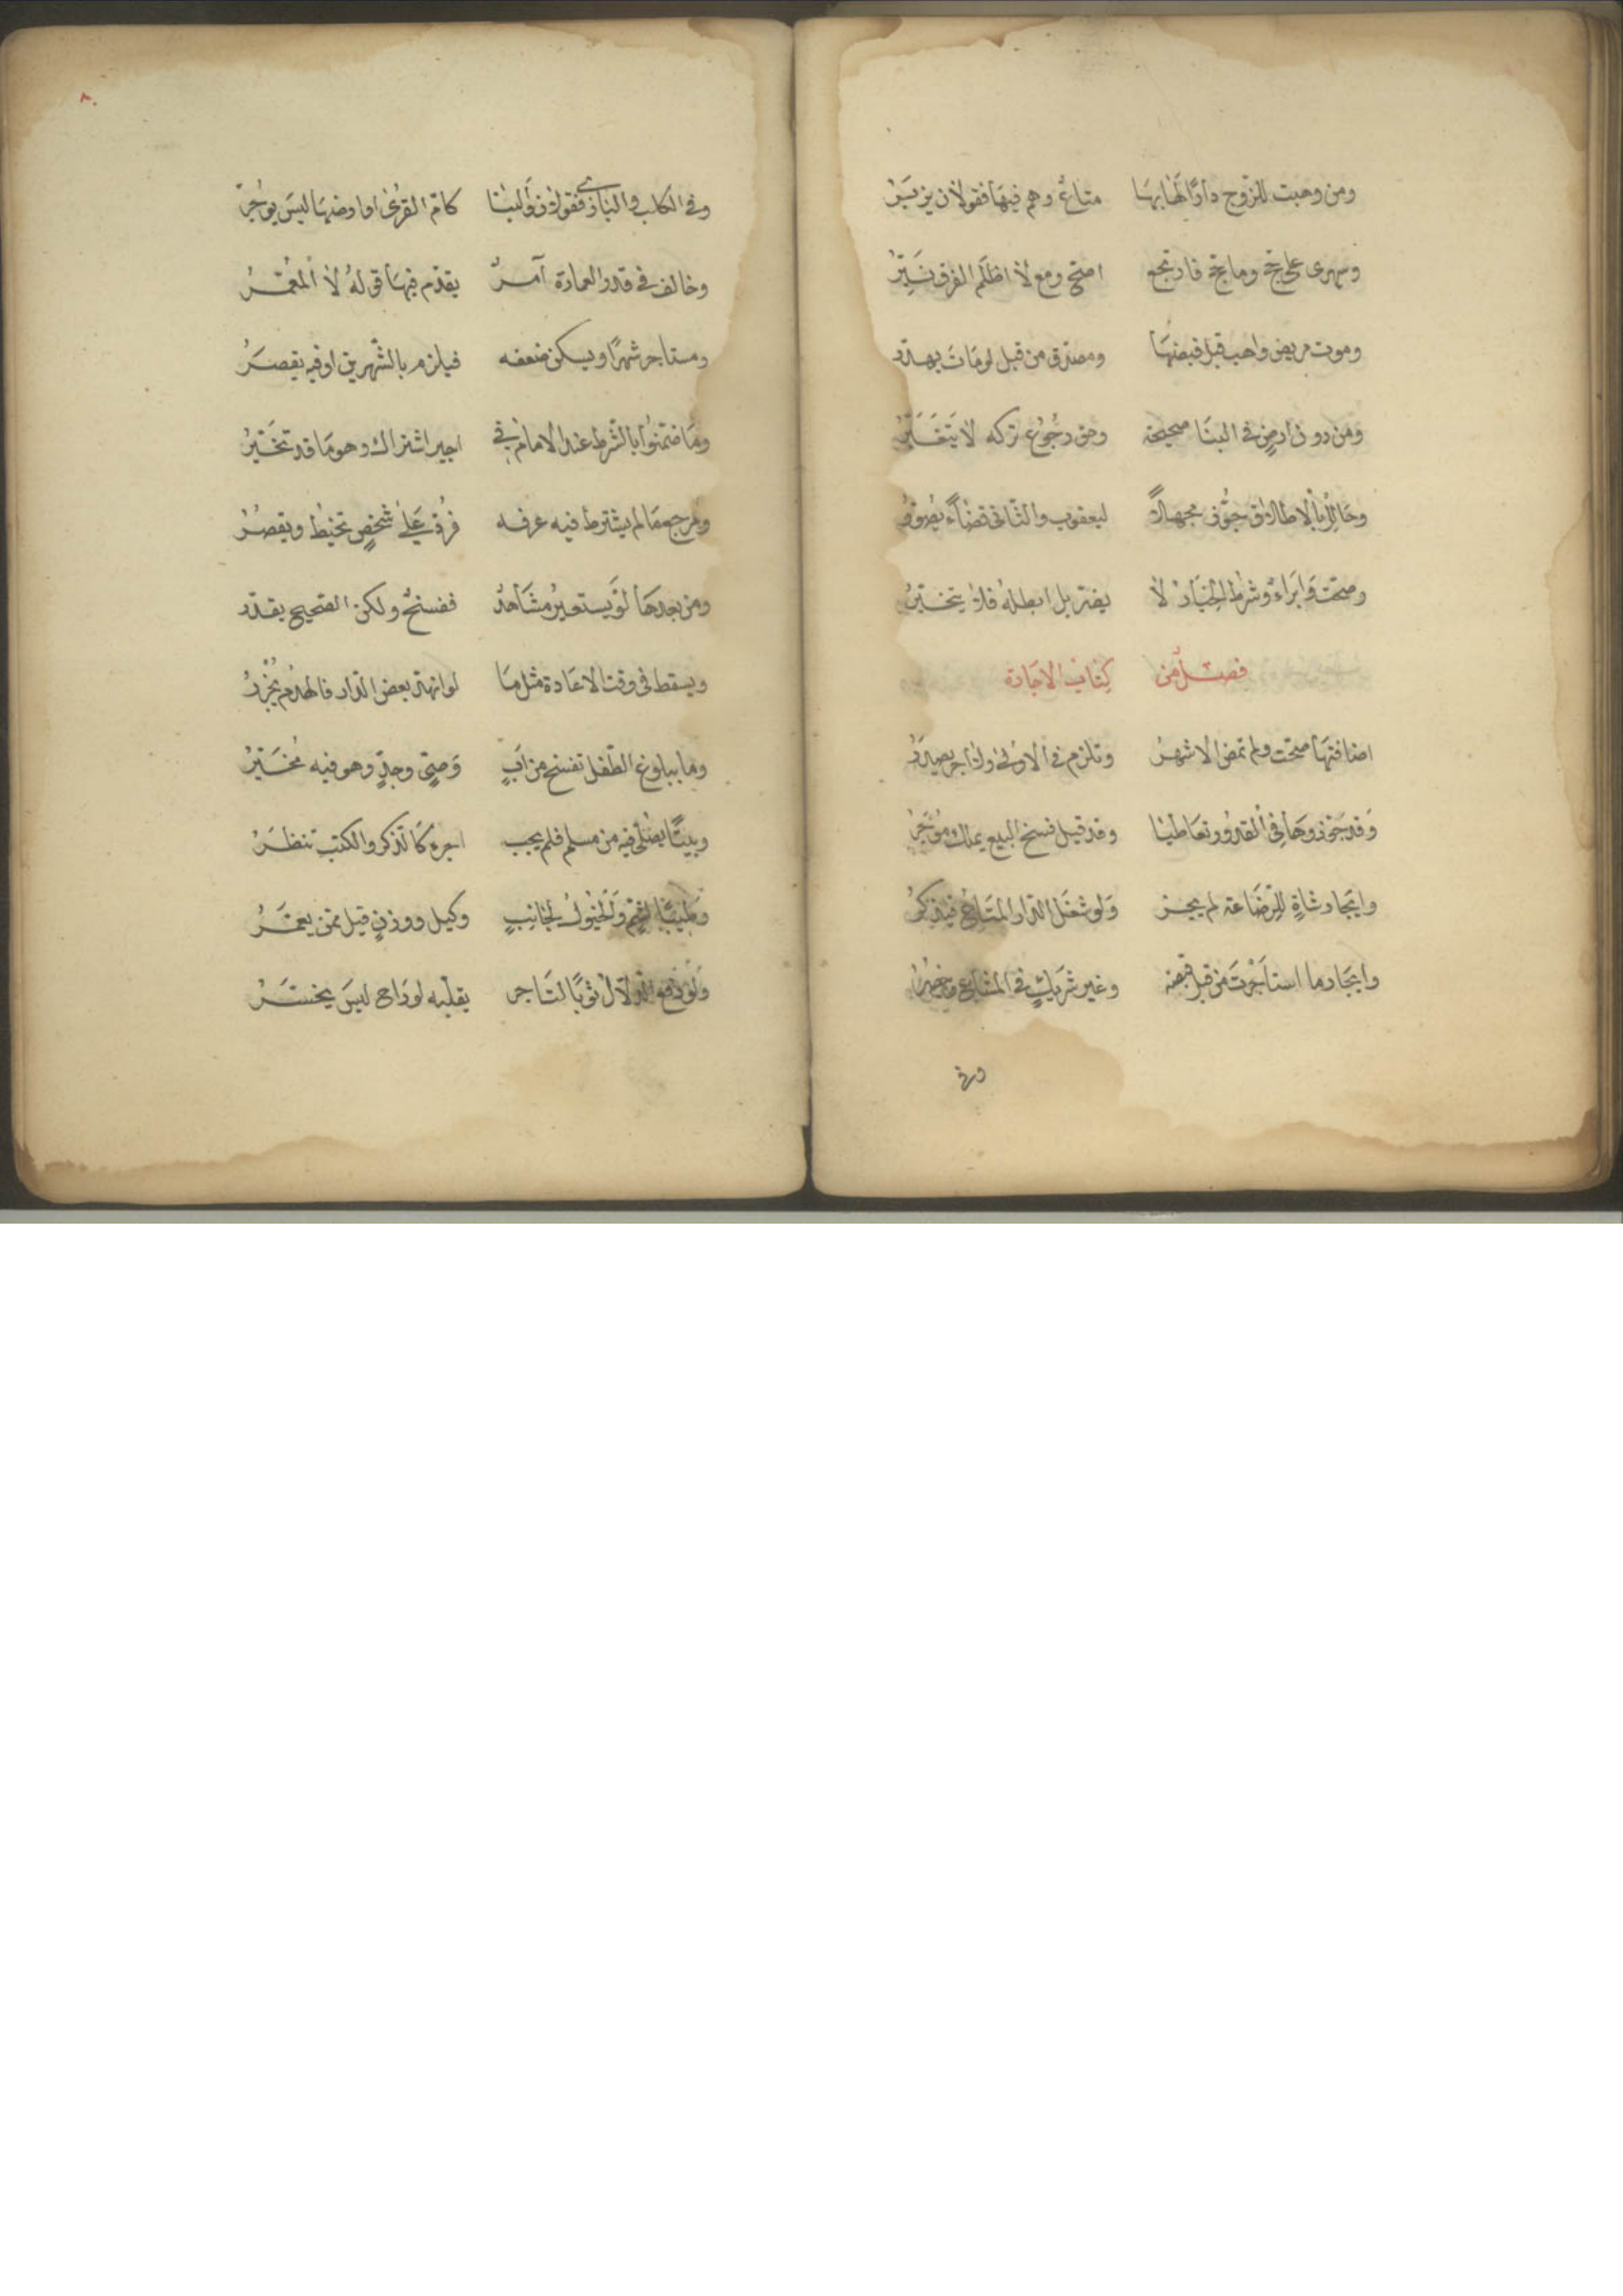 ومن وهبت للزّوج دارًا لها بها متاعٌ وهم فيها فقولان يزبر
ومهرى على حج وما حج فارتجع اصح ومع لا اظلم الفرق نير
وموت مريض واهب قبل قبضها ومصدق من قبل لو مات يهدر
ومن دون ارض في البنا صحيحة وحق رجوع تركه لا يتغير
وحائز بالاطلاق جوّز جهالة ليعقوب والثانى قضاء
وصحت وابراء وشرط الخيار لا يضر بل ابطله فلا يتخير
فصل من كتاب الاجارة
اضافتها صحت ولم تمض الاشهر وتلزم في الاولى ولا أجر
وقد جوزوها في القدور تعاطيا وقد قيل فسخ البيع يملك مؤجر
وايجار شاةٍ للرضاعة لم يجز ولو شغل الدار المتاع فيذكر
وايجار ما استأجرت من قبل قبضه وغير شريكٍ في المشاع
وفي
٨٠
وفي الكلب والبازى فقولان والبنا كامّ القرى او ارضها ليس يؤجر
وخالف في قدر العمارة آمرٌ يقدّم فيها قوله لا المعمّر
ومستاجر شهرًا ويسكن ضعفه فيلزم بالشّهرين او فيه يقصر
وما ضمّنوا بالشّرط عند الامام في اجير اشتراك وهو ما قد تخيّر
ومرجع ما لم يشترط فيه عرفه فرق على شخص تخيط ويقصر
ومن بعدها لو يستعير مشاهدٌ ففسخٌ ولكن الصحيح يقدّر
ويسقط في وقت الاعادة مثل ما لو انهدّ بعض الدار فالهدم يحزر
وما ببلوغ الطّفل تفسخ من ابٍ وصيّ وجدٍّ وهو فيه مخيّر
وبيتًا يصلّى فيه من مسلم فلم يجب اجره كالذكر والكتب تنظر
وطيبًا لشمّ والخيول لجانبٍ وكيل ووزنٍ قيل ممن يعمر
ولو دفع الدلال ثوبًا لتاجر يقلّبه لو راح ليس يخسر